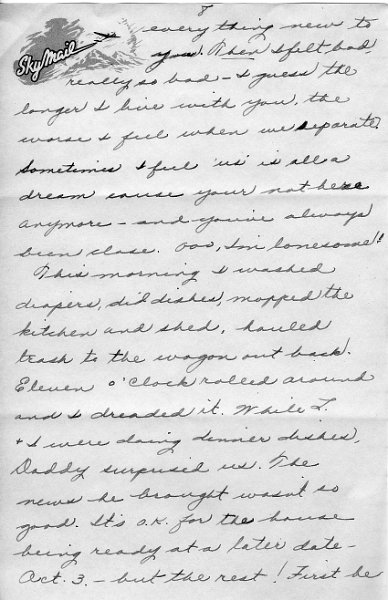 8
Sky Mail
everything new to
you. Then I felt bad,
really so bad - I guess the
longer I live with you, the
worse I feel when we separate.
Sometimes I feel 'us' is all a
dream cause your not here
anymore - and you've always
been close. Ooo, I'm lonesome!!
This morning I washed
diapers, did dishes, mopped the
kitchen and shed, hauled
trash to the wagon out back.
Eleven o'clock rolled around
and I dreaded it. While L.
+ I were doing dinner dishes,
Daddy surprised us. The
news he brought wasn't so
good. It's O.K. for the house
being ready at a later date -
Oct. 3. - but the rest! First be